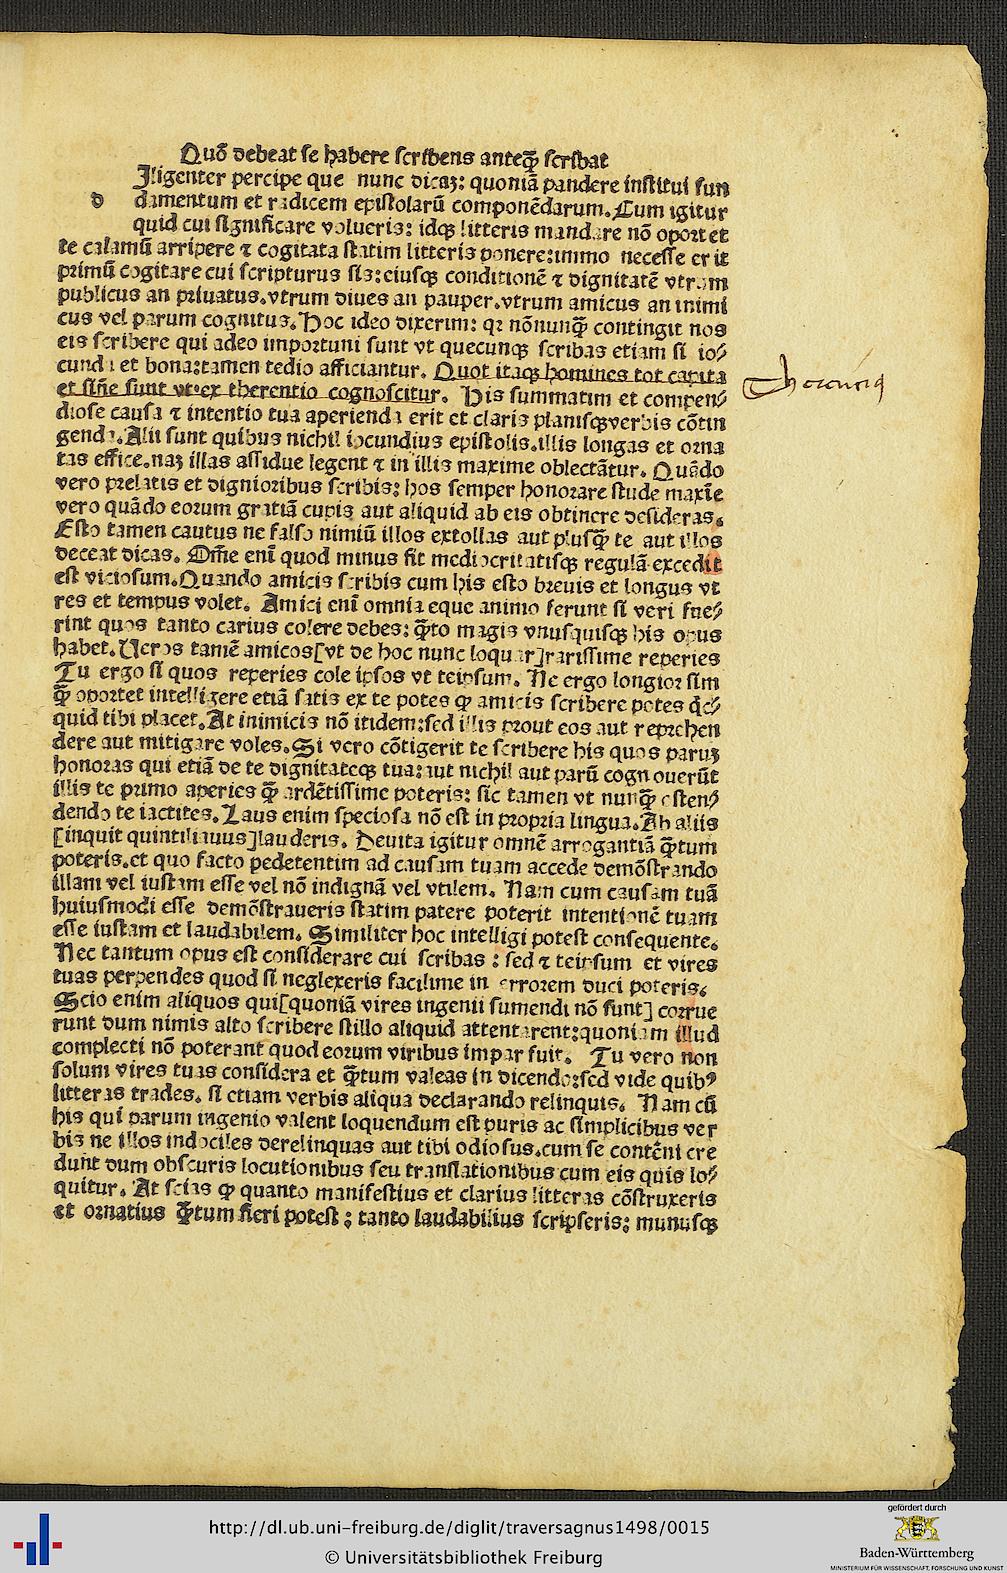 Quō debeat se habere scribens anteq̄ȝ scribat
Iligenter percipe que nunc dicaȝ: quoniā pandere institui fun
d damentum et radicem epistolarū componēdarum. Cum igitur
quid cui significare volueris: idqȝ litteris mandare nō oportet
te calamū arripere ⁊ cogitata statim litteris ponere: immo necesse erit
primū cogitare cui scripturus sis: eiusqȝ conditionē ⁊ dignitatē vtrum
publicus an priuatus. vtrum diues an pauper. vtrum amicus an inimi
cus vel parum cognitus. Hoc ideo dixerim: qꝛ nōnunq̄ȝ contingit nos
eis scribere qui adeo importuni sunt vt quecunqȝ scribas etiam si io⸗
cunda et bona: tamen tedio afficiantur. Quot itaqȝ homines tot capita
et sīñe sunt vt ex therentio cognoscitur. His summatim et compen⸗
diose causa ⁊ intentio tua aperienda erit et claris planisqȝ verbis cōtin
genda. Alii sunt quibus nichil iocundius epistolis. illis longas et orna
tas effice. naȝ illas assidue legent ⁊ in illis maxime oblectātur. Quādo
vero prelatis et dignioribus scribis: hos semper honorare stude maxīe
vero quādo eorum gratiā cupis aut aliquid ab eis obtinere desideras.
Esto tamen cautus ne falso nimiū illos extollas aut plusq̄ȝ te aut illos
deceat dicas. Om̄e enī quod minus fit mediocritatisqȝ regulā excedit
est viciosum. Quando amicis scribis cum his esto breuis et longus vt
res et tempus volet. Amici enī omnia eque animo ferunt si veri fue⸗
rint quos tanto carius colere debes: q̄ȝto magis vnusquisqȝ his opus
habet. Veros tamē amicos [vt de hoc nunc loquar] rarissime reperies
Tu ergo si quos reperies cole ipsos vt teipsum. Ne ergo longior sim
q̄ȝ oportet intelligere etiā satis ex te potes ꝙ amicis scribere potes q̇c⸗
quid tibi placet. At inimicis nō itidem: sed illis prout eos aut reprehen
dere aut mitigare voles. Si vero cōtigerit te scribere his quos paruȝ
honoras qui etiā de te dignitateqȝ tua: aut nichil aut parū cognouerūt
illis te primo aperies q̄ȝ ardētissime poteris: sic tamen vt nunq̄ȝ osten⸗
dendo te iactites. Laus enim speciosa nō est in propria lingua. Ab aliis
[inquit quintilianus] lauderis. Deuita igitur omnē arrogantiā q̄ȝtum
poteris. et quo facto pedetentim ad causam tuam accede demōstrando
illam vel iustam esse vel nō indignā vel vtilem. Nam cum causam tuā
huiusmodi esse demōstraueris statim patere poterit intentionē tuam
esse iustam et laudabilem. Similiter hoc intelligi potest consequente.
Nec tantum opus est considerare cui scribas: sed ⁊ teipsum et vires
tuas perpendes quod si neglexeris facilime in errorem duci poteris.
Scio enim aliquos qui [quoniā vires ingenii sumendi nō sunt] corrue
runt dum nimis alto scribere stillo aliquid attentarent: quoniam illud
complecti nō poterant quod eorum viribus impar fuit. Tu vero non
solum vires tuas considera et q̄ȝtum valeas in dicendo: sed vide quibꝰ
litteras trades. si etiam verbis aliqua declarando relinquis. Nam cū
his qui parum ingenio valent loquendum est puris ac simplicibus ver
bis ne illos indociles derelinquas aut tibi odiosus. cum se contēni cre
dunt dum obscuris locutionibus seu translationibus cum eis quis lo⸗
quitur. At scias ꝙ quanto manifestius et clarius litteras cōstruxeris
et ornatius q̄ȝtum fieri potest: tanto laudabilius scripseris: munusqȝ
http://dl.ub.uni-freiburg.de/diglit/traversagnus1498/0015
© Universitätsbibliothek Freiburg
gefördert durch
Baden-Württemberg
MINISTERIUM FÜR WISSENSCHAFT, FORSCHUNG UND KUNST